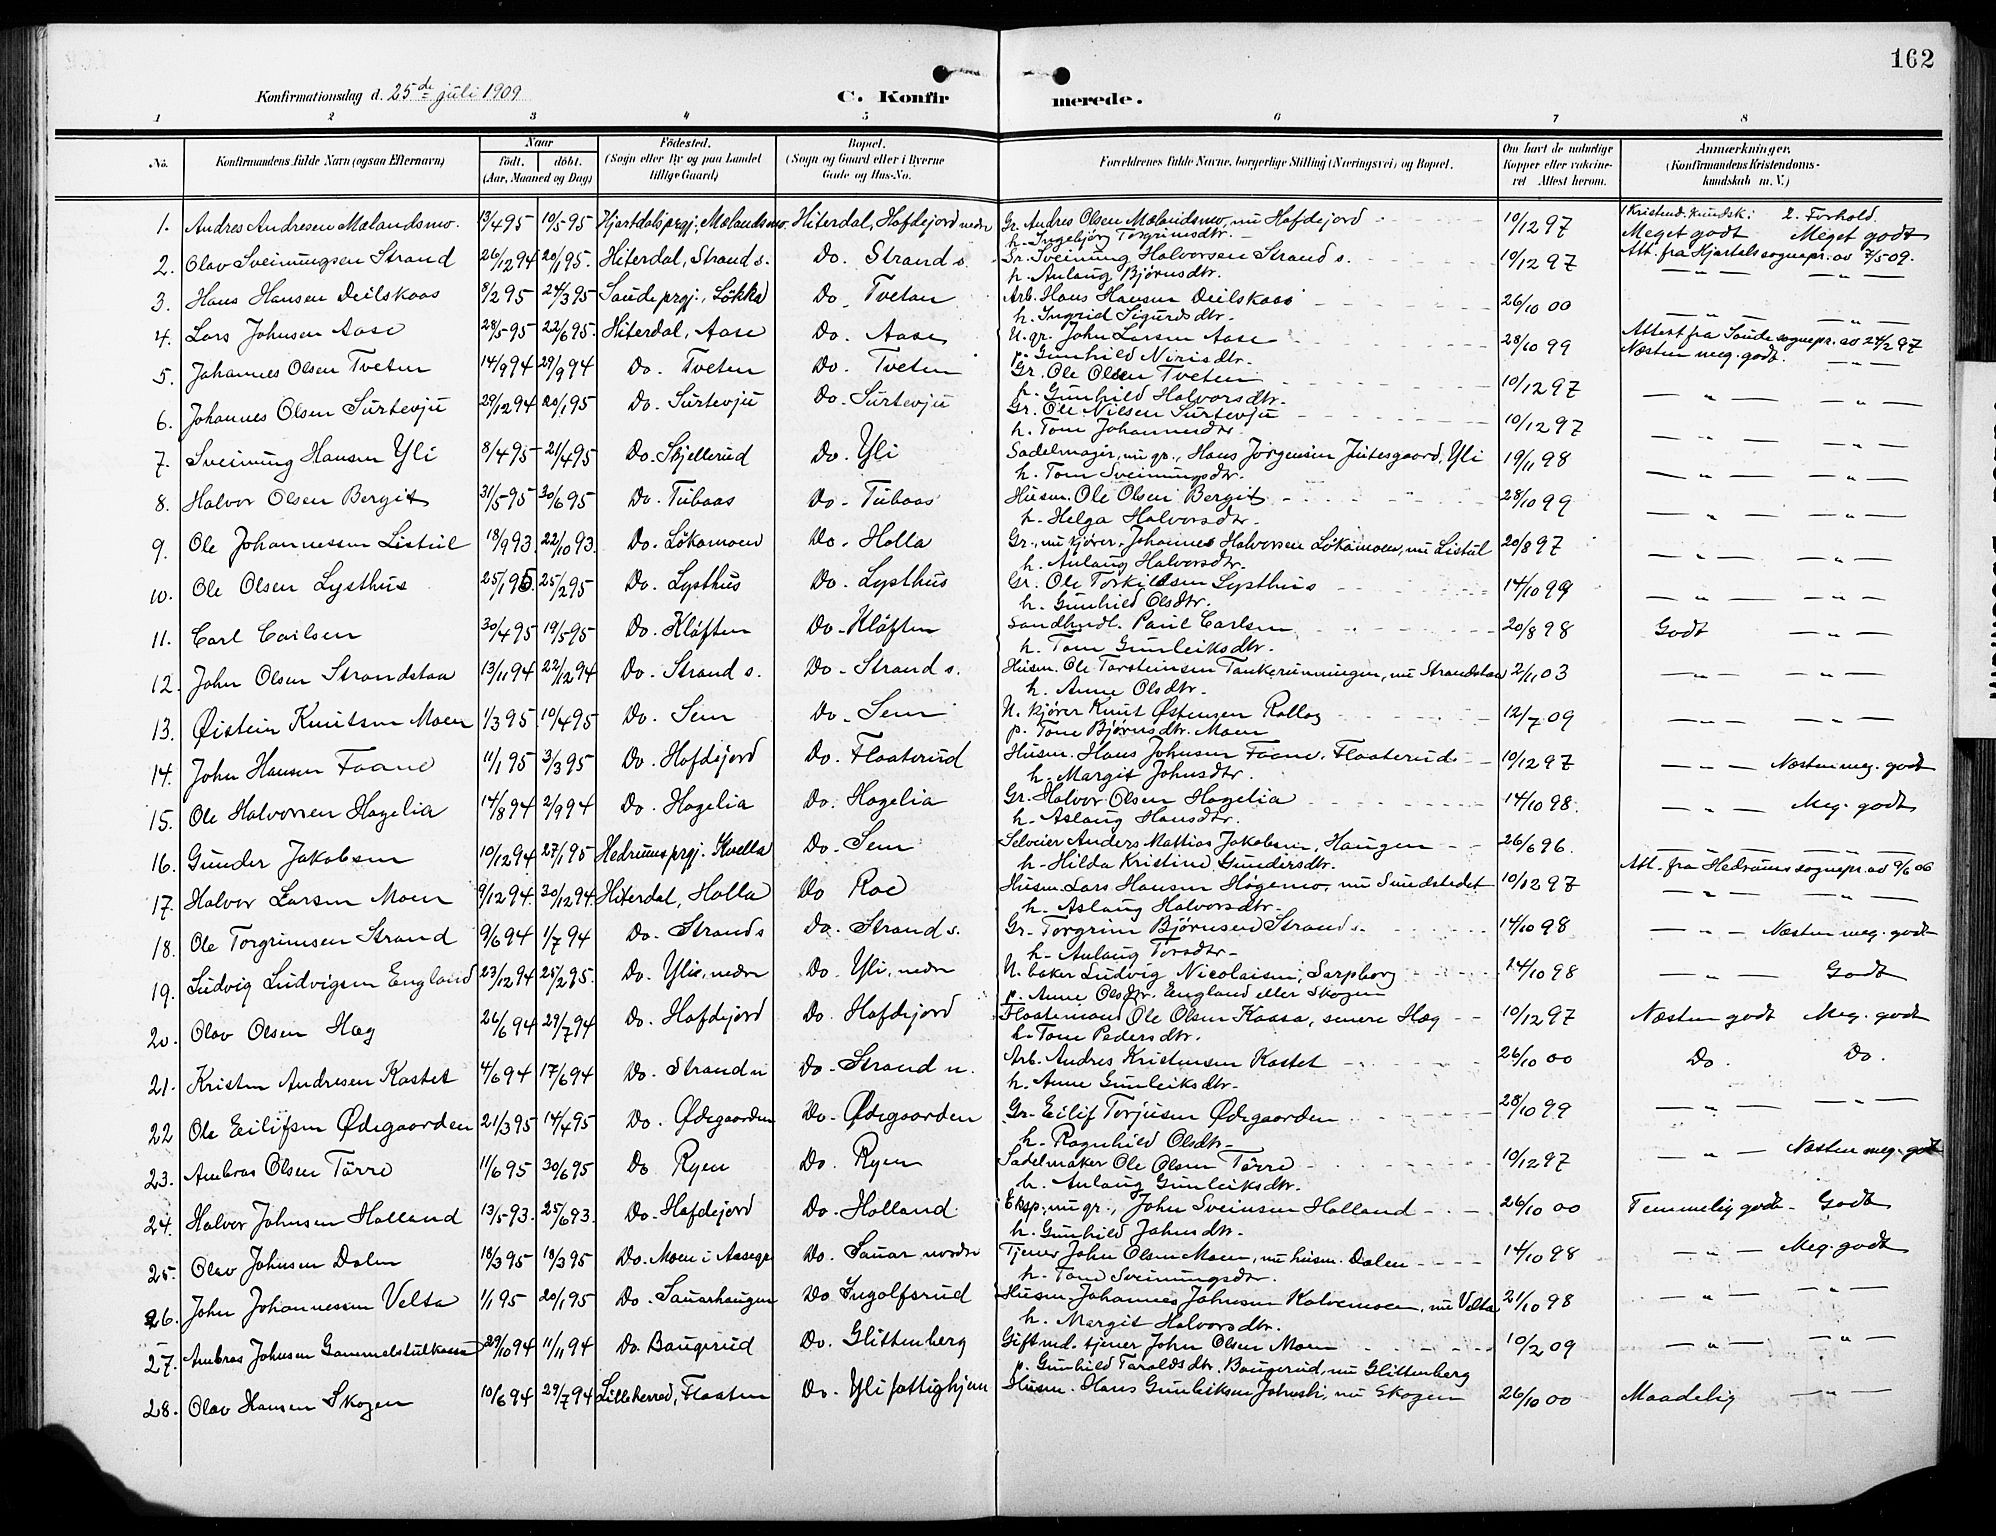 162
Konfirmationsdag d. 25de juli 1909 C. Konfirmerede.
1 2 3 4 5 6 7 8
No. Konfirmandens fulde Navn (ogsaa Efternavn) Naar født. døbt. (Aar, Maaned og Dag) Fødested. (Sogn eller By og paa Landet tillige Gaard) Bopæl. (Sogn og Gaard eller i Byerne Gade og Hus-No. Forældrenes fulde Navne, borgerlige Stilling (Næringsvei) og Bopæl. Om havt de naturlige Kopper eller vaccineret Attest herom. Anmærkninger. (Konfirmandens Kristendomskundskab m. V.)
1. Kristend. kundsk: 2. Forhold.
1. Andres Andresen Mælandsmo. 13/4 95 10/5 95 Hjartdals prgj., Mælandsmo. Hiterdal, Hofdejord nedre Gr. Andres Olsen Mælandsmo, nu Hofdejord 10/12 97 Meget godt Meget godt
h. Ingebjørg Torgrimsdtr. Att. fra Hjartdals sognepr. av 7/5 09.
2. Olav Sveinungsen Strand 26/12 94 20/1 95. Hiterdal, Strand s. Do. Strand s Gr. Sveinung Halvorsen Strand s. 10/12 97 — " — — " —
h. Aulaug Bjørnsdtr.
3. Hans Hansen Deilskaas 8/2 95 24/3 95 Saude prgj., Løkka Do. Tveten Arb. Hans Hansen Deilskaas 26/10 00 — " — — " —
h. Ingrid Sigurdsdtr. Attest fra Saude sognepr. av 24/2 97
4. Lars Johnsen Aase 28/5 95 22/6 95. Hiterdal, Aase Do. Aase U. gr. John Larsen Aase 28/10 99 Næsten meg. godt. — " —
p. Gunhild Nirisdtr.
5. Johannes Olsen Tveten 14/9 94 29/9 94 Do. Tveten Do. Tveten Gr. Ole Olsen Tveten 10/12 97 — " — — " —
h. Gunhild Halvorsdtr.
6. Johannes Olsen Surtevju 29/12 94 20/1 95 Do. Surtevju Do. Surtevju Gr. Ole Nilsen Surtevju 10/12 97 — " — — " —
h. Tone Johannesdtr.
7. Sveinung Hansen Yli 8/4 95 21/4 95 Do. Skjellerud Do. Yli Sadelmager, nu gr., Hans Jørgensen Jutesgaard, Yli 19/11 98 — " — — " —
h. Tone Sveinungsdtr.
8. Halvor Olsen Bergit 31/5 95 30/6 95 Do. Tubaas Do. Tubaas Husm. Ole Olsen Bergit 28/10 99 — " — — " —
h. Helga Halvorsdtr.
9. Ole Johannessen Listul 18/9 93. 22/10 93. Do. Løkamoen Do. Holla Gr., nu kjører, Johannes Halvorsen Løkamoen, nu Listul 20/8 97 — " — — " —
h. Aulaug Halvorsdtr.
10. Ole Olsen Lysthus 25/1 95. 25/2 95 Do. Lysthus Do. Lysthus Gr. Ole Torkildsen Lysthus 14/10 99 — " — — " —
h. Gunhild Olsdtr.
11. Carl Carlsen 30/4 95 19/5 95 Do. Kløften Do. Kløften Landhndl. Paul Carlsen 20/8 98 Godt — " —
h. Tone Gunleiksdtr.
12. John Olsen Strandstaa 13/11 94 22/12 94 Do. Strand s. Do. Strand s. Husm. Ole Torsteinsen Tankerunningen, nu Strandstaa 2/11 03 — " — — " —
h. Anne Olsdtr.
13. Øistein Knutsen Moen 1/3 95 10/4 95 Do. Sem Do. Sem U. kjører Knut Østensen Rollag 12/7 09 — " — — " —
p. Tone Bjørnsdtr. Moen
14. John Hansen Foane 11/1 95 3/3 95 Do. Hofdejord Do. Flaaterud Husm. Hans Johnsen Foane, Flaaterud 10/12 97 — " — Næsten meg. godt
h. Margit Johnsdtr.
15. Ole Halvorsen Hagelia 14/8 94 2/9 94 Do. Hagelia Do. Hagelia Gr. Halvor Olsen Hagelia 14/10 98. — " — Meg. godt
h. Aslaug Hansdtr.
16. Gunder Jakobsen 10/12 94 27/1 95 Hedrums prgj. Kvella Do. Sem Selveier Anders Mattias Jakobsen, Haugen 26/6 96. — " — — " —
h. Hilda Kristine Gundersdtr. Att. fra Hedrums sognepr. av 9/6 06
17. Halvor Larsen Moen 9/12 94. 30/12 94. Hiterdal, Holla Do Roe Husm. Lars Hansen Høgemo, nu Sundstedet 10/12 97 — " — — " —
h. Aslaug Halvorsdtr.
18. Ole Torgrimsen Strand 9/6 94 1/7 94 Do. Strand s Do. Strand s. Gr. Torgrim Bjørnsen Strand s. 14/10 98 — " — Næsten meg. godt
h. Aulaug Torsdtr.
19. Ludvig Ludvigsen England 23/12 94 25/2 95. Do. Yli, nedre Do. Yli, nedre U. baker Ludvig Nicolaisen, Sarpborg 24/10 98 — " — Godt
p. Anne Olsdtr. England eller Skogen
20. Olav Olsen Hæg 26/6 94 29/7 94 Do. Hofdejord Do. Hofdejord Flaatemand Ole Olsen Kassa, senere Hæg 10/12 97 Næsten godt Meg. godt
h. Tone Pedersdtr.
21. Kristen Andresen Kastet 4/6 94 17/6 94 Do. Strand n Do. Strand n. Arb. Andres Kristensen Kastet 26/10 00 Do. Do.
h. Anne Gunleiksdtr.
22 Ole Eilifsen Ødegaarden 21/3 95 14/4 95 Do. Ødegaarden Do. Ødegaarden Gr. Eilif Torjusen Ødegaarden 28/10 99 — " — — " —
h. Ragnhild Olsdtr.
23. Ambros Olsen Tørre 11/6 95 30/6 95 Do Ryen Do. Ryen Sadelmaker Ole Olsen Tørre 10/12 97 — " — Næsten meg. godt
h. Aulaug Gunleiksdtr.
24. Halvor Johnsen Holland 13/5 93. 25/6 93. Do. Hofdejord Do. Holland Eksp., nu gr., John Sveinsen Holland 26/10 00 Temmelig godt Godt
h. Gunhild Johnsdtr.
25. Olav Johnsen Dalen 18/3 95 18/3 95 Do. Moen i Aasegr Do. Sauar nordre Tjener John Olsen Moen, nu husm. Dalen 14/10 98 — " — Meg. godt
h. Tone Sveinungsdtr.
26. John Johannessen Velta 1/1 95 20/1 95 Do. Sauarhaugen Do Ingolfsrud Husm. Johannes Johnsen Kalvemoen, nu Velta 21/10 98 — " — — " —
h. Margit Halvorsdtr.
27. Ambros Johnsen Gammelstulkaasa 29/10 94 11/11 94 Do. Baugerud Do. Glittenberg Gift md. tjener John Olsen Moen 10/2 09 — " — — " —
p. Gunhild Taraldsdtr. Baugerud, nu Glittenberg
28. Olav Hansen Skogen 10/6 94 29/7 94 Lilleherred, Flaaten Do. Yli fattighjem Husm. Hans Gunleiksen, nu Skogen 26/10 00 Maadelig — " —